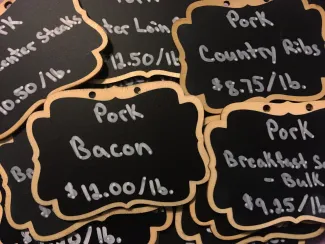 Pork
enter Steaks
10.50/lb.
ter Loin
12.50/lb
Pork
Country Ribs
$8.75/lb.
Pork
Bacon
$12.00/lb.
Pork
Breakfast Sa
- Bulk
$9.25/lb